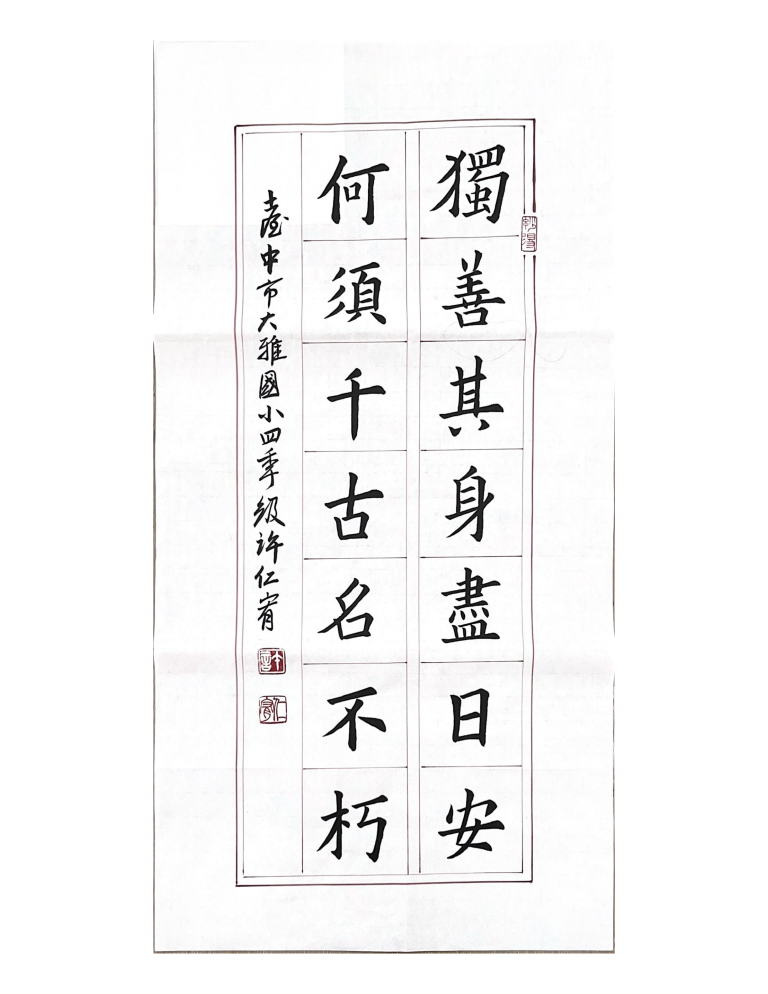 獨善其身盡日安
何須千古名不朽
臺中市大雅國小四季級許仁宥